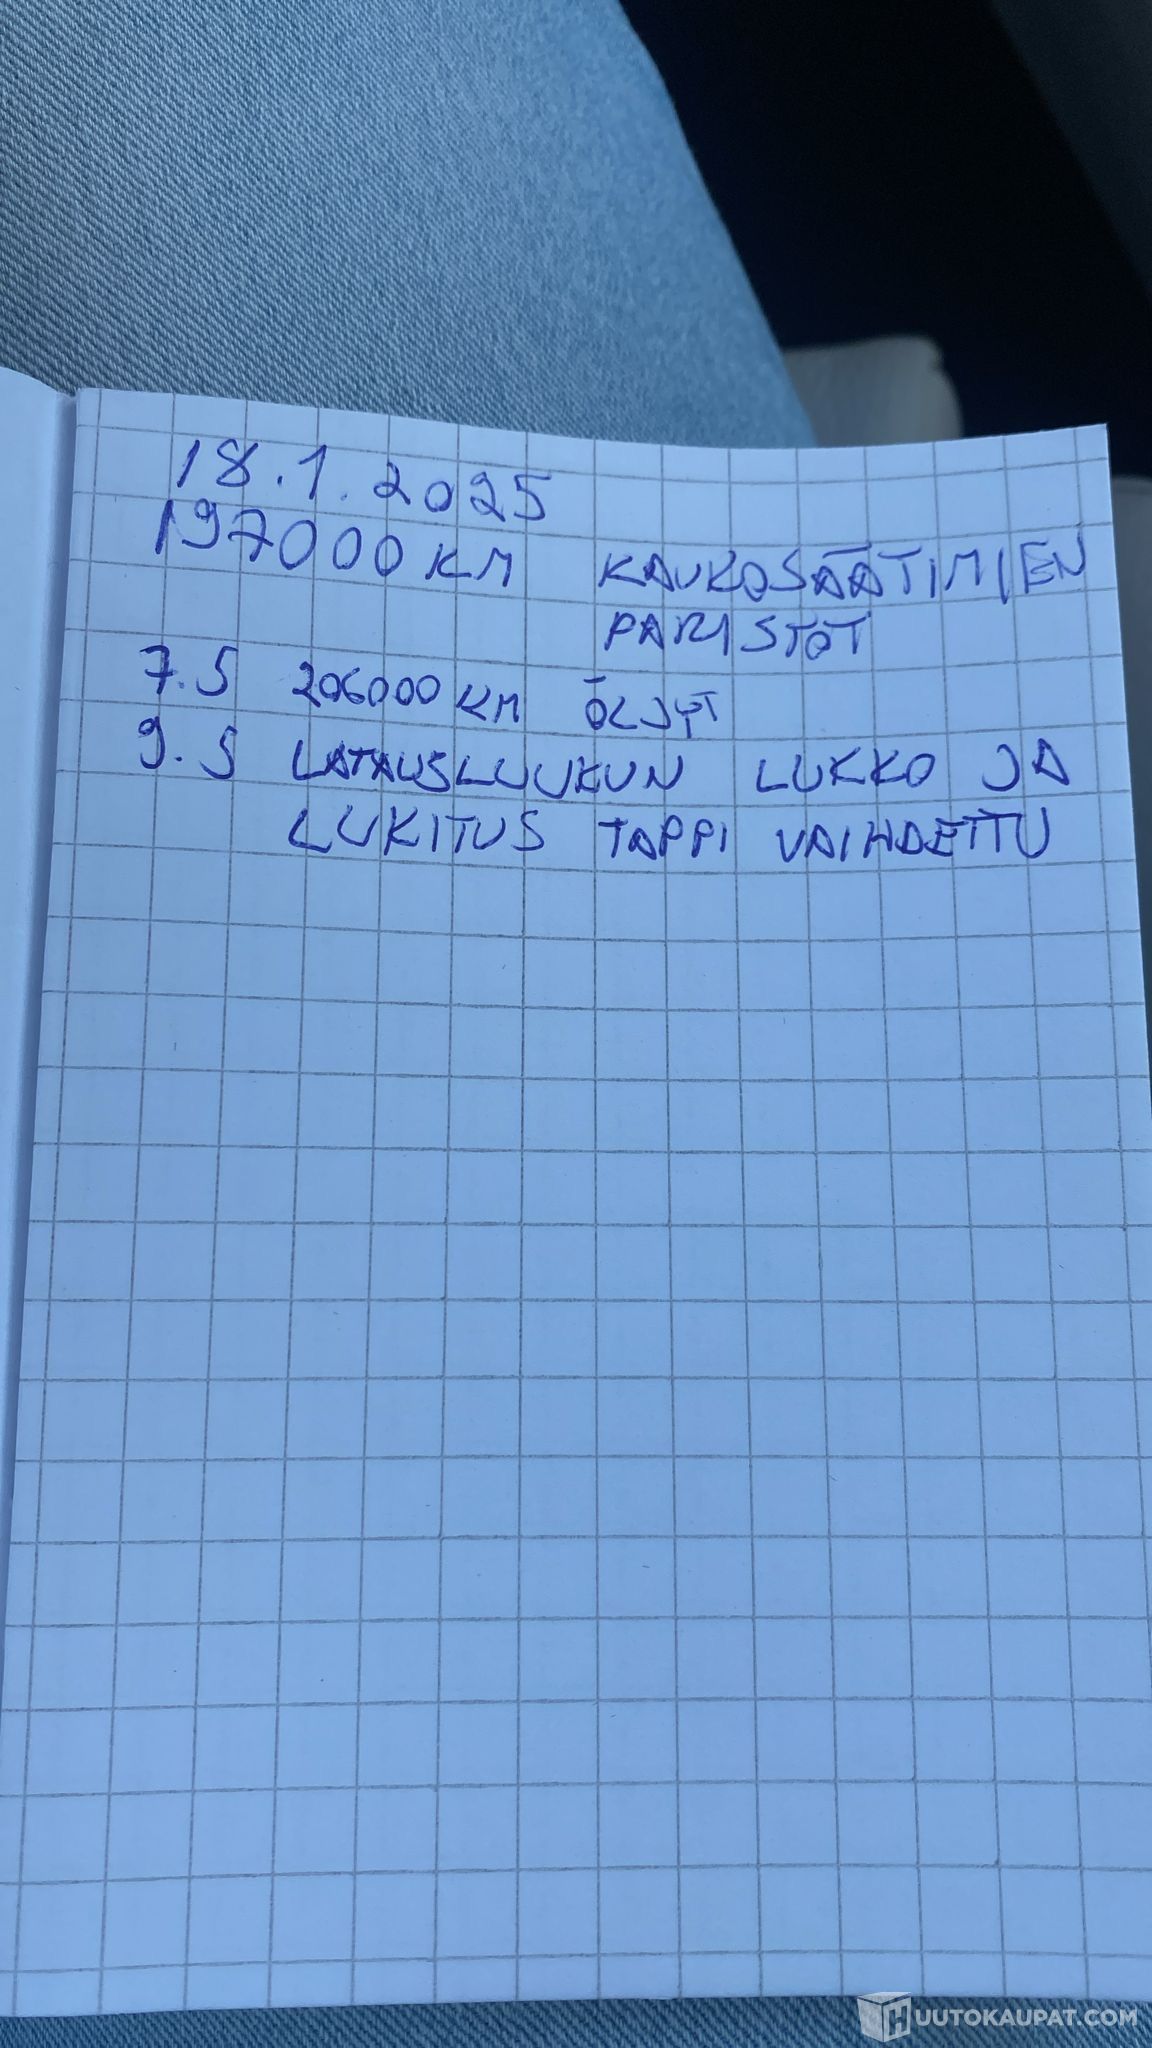 18.1.2025
197000 KM KAUKOSÄÄTIMIEN
PARISTOT
7.5 206000 KM ÖLJYT
9.5 LATAUSLUUKUN LUKKO JA
LUKITUS TAPPI VAIHDETTU
HUUTOKAUPAT.COM